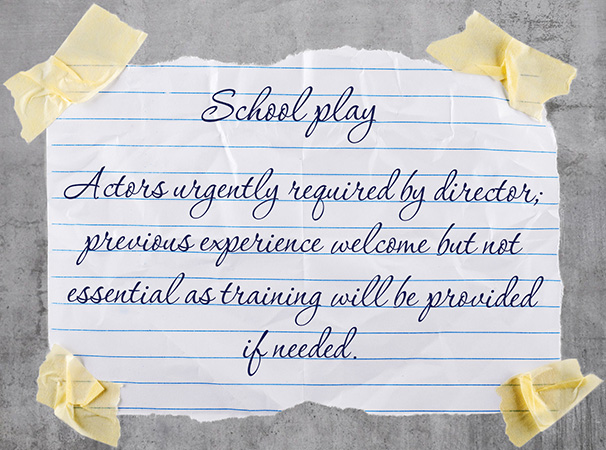 School play
Actors urgently required by director;
previous experience welcome but not
essential as training will be provided
if needed.